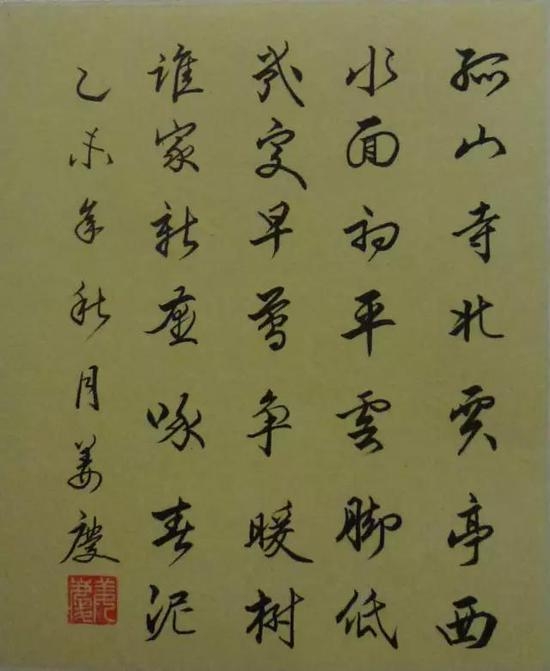 孤山寺北賈亭西
水面初平雲脚低
幾處早鶯争暖樹
誰家新燕啄春泥
乙未年秋月姜慶